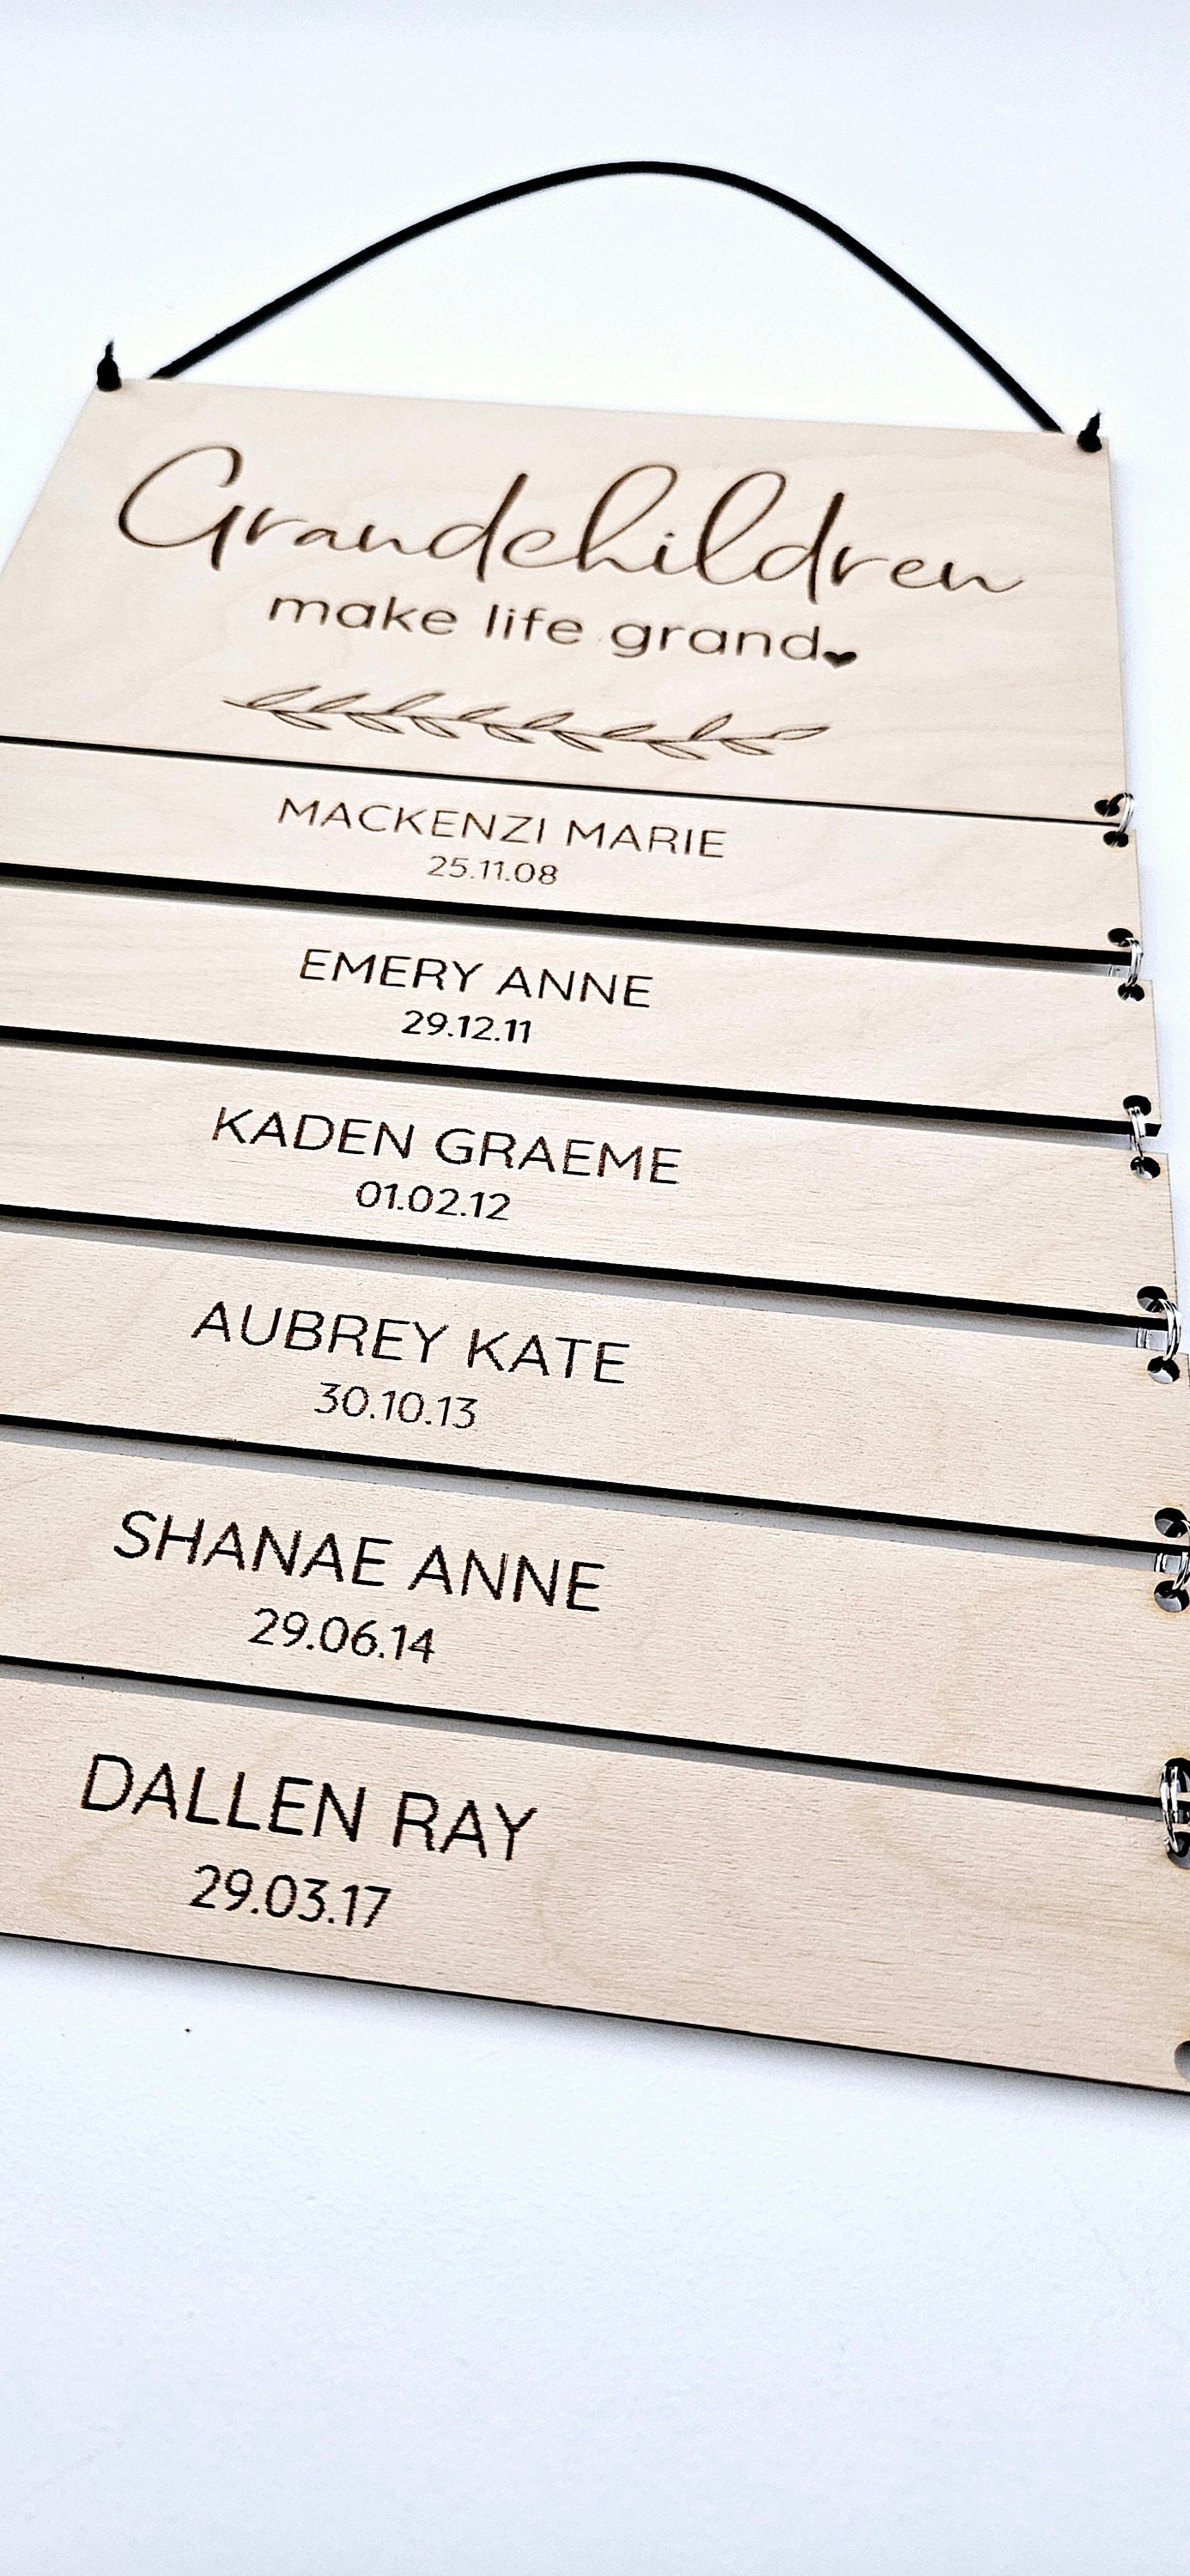 Grandchildren
make life grand
MACKENZI MARIE
25.11.08
EMERY ANNE
29.12.11
KADEN GRAEME
01.02.12
AUBREY KATE
30.10.13
SHANAE ANNE
29.06.14
DALLEN RAY
29.03.17